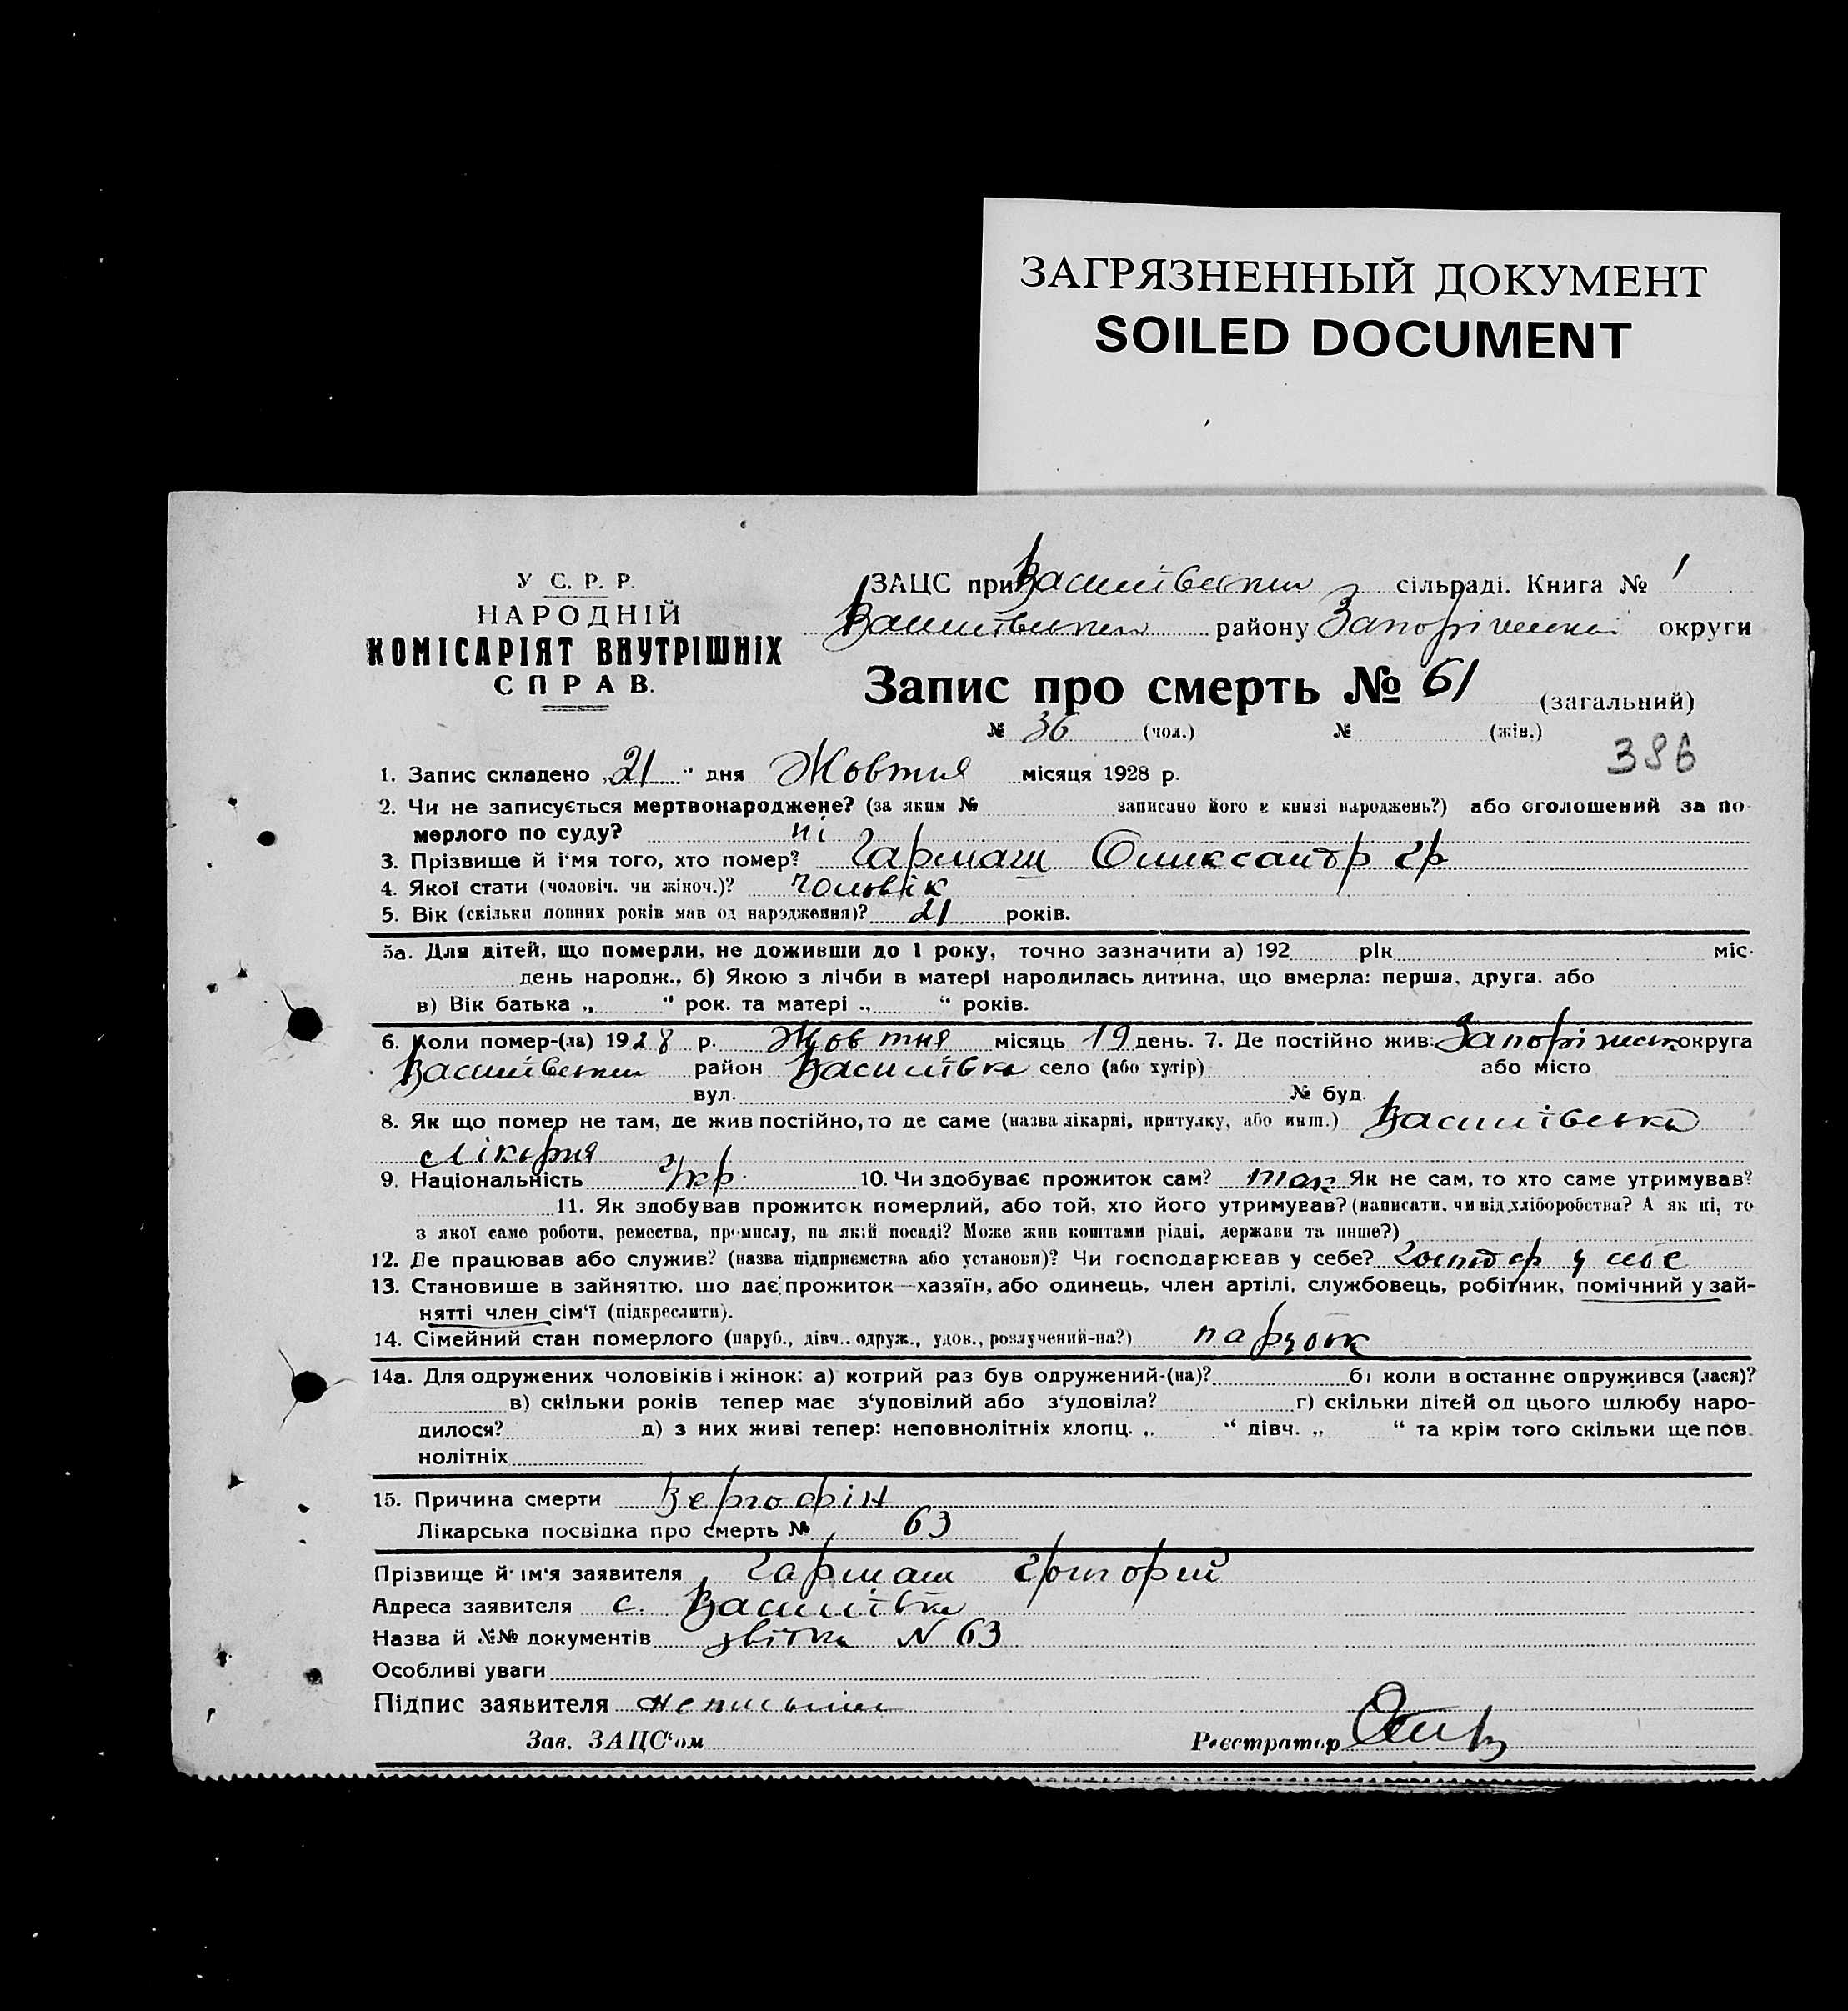 ЗАГРЯЗНЕННЫЙ ДОКУМЕНТ
SOILED DOCUMENT
У С. Р. Р.
НАРОДНІЙ
КОМІСАРІЯТ ВНУТРІШНІХ
СПРАВ.
ЗАЦС при Василівськи сільраді. Книга № 1
Василівськи району Запоріжськи округи
Запис про смерть № 61 (загальний)
№ 36 (чол.) № (жін.)
386
1. Запис складено „21" дня Жовтня місяця 1928 р.
2. Чи не записується мертвонароджене? (за яким № записано його в книзі народжень?) або оголошений за по-
мерлого по суду? ні
3. Прізвище й ім'я того, хто помер? Гармаш Олександр Гр
4. Якої стати (чоловіч. чи жіноч.)? Чоловік
5. Вік (скільки повних років мав од народження)? 21 років.
5а. Для дітей, що померли, не доживши до 1 року, точно зазначити а) 192 рік міс.
день народж., б) Якою з лічби в матері народилась дитина, що вмерла: перша, друга. або
в) Вік батька „ " рок. та матері „ " років.
6. Коли помер-(ла) 1928 р. Жовтня місяць 19 день. 7. Де постійно жив: Запоріжськ округа
Василівськи район Василівка село (або хутір) або місто
вул. № буд.
8. Як що помер не там, де жив постійно, то де саме (назва лікарні, притулку, або инш.) Василівська
Лікарня
9. Національність Укр. 10. Чи здобуває прожиток сам? так Як не сам, то хто саме утримував?
11. Як здобував прожиток померлий, або той, хто його утримував? (написати, чи від хліборобства? А як ні, то
з якої саме роботи, ремества, промислу, на якій посаді? Може жив коштами рідні, держави та инше?)
12. Де працював або служив? (назва підприємства або установи)? Чи господарював у себе? Господар у себе
13. Становище в зайняттю, що дає прожиток—хазяїн, або одинець, член артілі, службовець, робітник, помічний у зай-
нятті член сім'ї (підкреслити).
14. Сімейний стан померлого (паруб., дівч.. одруж., удов., розлучений-на?) парубок
14а. Для одружених чоловіків і жінок: а) котрий раз був одружений-(на)? б) коли в останнє одружився (лася)?
в) скільки років тепер має з'удовілий або з'удовіла? г) скільки дітей од цього шлюбу наро-
дилося? д) з них живі тепер: неповнолітніх хлопц. „ " дівч. „ " та крім того скільки ще пов-
нолітніх
15. Причина смерти
Лікарська посвідка про смерть № 63
Прізвище й ім'я заявителя Гармаш Григорій
Адреса заявителя с. Василівка
Назва й №№ документів звітка N 63
Особливі уваги
Підпис заявителя неписьмен
Зав. ЗАЦС'ом Реєстратор